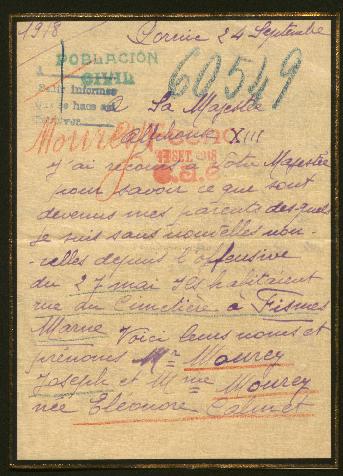 1918
Pornic 24 Septembre
POBLACIÓN
CIVIL
60549
Pedir informes
A Sa Majesté
Alphonse XIII
Mourey
SET. 1918
J'ai recours à Votre Majesté
pour savoir ce que sont
devenus mes parents desquels
je suis sans nouvelles nou-
velles depuis l'offensive
du 27 mai Ils habitaient
rue du Cimetière à Fismes
Marne Voici leurs noms et
prénoms Mr Mourey
Joseph et Mme Mourey
née Eléonore Calmet